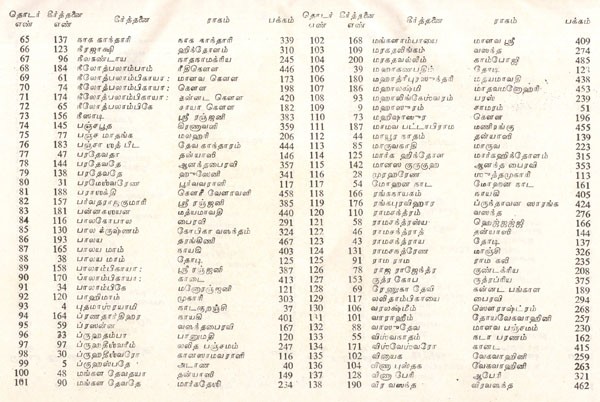 தொடர் கீர்த்தனை கீர்த்தனை ராகம் பக்கம் தொடர் கீர்த்தனை கீர்த்தனை ராகம் பக்கம்
எண் எண் எண் எண்
65 137 நாக காந்தாரி நாக காந்தாரி 339 102 168 மங்களாம்பாயை மாளவ ஸ்ரீ 409
66 123 நீரஜாக்ஷி ஹிந்தோளம் 310 103 109 மரகதலிங்கம் வஸந்த 274
67 96 நீலகண்டாய நாதநாமக்ரியா 245 104 200 மரகதவல்லீம் காம்போஜி 485
68 184 நீலோத்பலாம்பாம் ரீதிகௌள 446 105 39 மஹாகணபதிம் தோடி 121
69 61 நீலோத்பலாம்பிகாயா: மாளவ கௌள 173 106 180 மஹாத்ரிபுரஸுந்தரி மத்யமாவதி 438
70 74 நீலோத்பலாம்பிகாயை கௌள 198 107 186 மஹாலக்ஷ்மி மாதவமனோஹரி 453
71 174 நீலோத்பலாம்பிகாயா: கன்னட கௌள 420 108 93 மஹாலிங்கேஸ்வரம் பரஸ் 239
72 65 நீலோத்பலாம்பிகே சாயா கௌள 182 109 9 மஹாஸுரம் சாமரம் 51
73 156 நீஸாடி ஸ்ரீ ரஞ்ஜனி 383 110 73 மஹிஷாஸுர கௌள 196
74 145 பஞ்சபூத கிரணாவளி 359 111 187 மாமவ பட்டாபிராம மணிரங்கு 455
75 77 பஞ்ச மாதங்க மலஹரி 206 112 44 மாயூர நாதம் தன்யாஸி 139
76 183 பஞ்சாஸத் பீட தேவ காந்தாரம் 444 113 85 மாருவகாதி மாருவ 223
77 47 பரதேவதா தன்யாஸி 146 114 125 மார்க ஹிந்தோள மார்கஹிந்தோளம் 315
78 144 பரதேவதே ஆனந்தபைரவி 357 115 142 மானஸ குருகுஹ ஆனந்தபைரவி 353
79 138 பரதேவதே ஹுஸேனி 341 116 28 முரஹரேண ஸுத்தமுகாரி 113
80 31 பரமேஸ்வரேண பூர்வவராளி 117 117 54 மோஹன நாட மோஹன நாட 161
81 188 பராஸக்தி கௌரி வேளாவளி 458 118 166 ரங்கநாயகம் நாயகி 405
82 157 பர்வதராஜகுமாரி ஸ்ரீ ரஞ்ஜனி 385 119 176 ரங்கபுரவிஹார ப்ருந்தாவன ஸாரங்க 424
83 181 பன்னகஸயன மத்யமாவதி 440 120 110 ராமசந்த்ரம் வஸந்த 276
84 116 பாலகோபால பைரவி 291 121 58 ராமசந்த்ரஸ்ய ஹெஜ்ஜஜ்ஜி 166
85 130 பால க்ருஷ்ணம் கோபிகா வஸந்தம் 324 122 46 ராமசந்த்ராத் தன்யாஸி 144
86 193 பாலய தரங்கிணி 467 123 43 ராமசந்த்ராய தோடி 137
87 165 பாலய மாம் நாயகி 403 124 131 ராமசந்த்ரேண மாஞ்சி 326
88 38 பாலய மாம் தோடி 125 125 91 ராம ராம ராம கலி 235
89 158 பாலாம்பிகாயா: ஸ்ரீ ரஞ்ஜனி 387 126 78 ராஜ ராஜேந்த்ர குண்டக்ரிய 208
90 170 பாலாம்பிகாயா: கானடை 413 127 153 ருத்ர கோப ருத்ரப்ரிய 375
91 34 பாலாம்பிகே மனோரஞ்ஜனி 121 128 69 ரேணுகா தேவி கன்னட பங்காள 189
92 120 பாஹிமாம் முகாரி 303 129 117 லலிதாம்பிகாயை பைரவி 294
93 4 புதமாஸ்ரயாமி நாடகுறஞ்ஜி 37 130 106 வரலக்ஷ்மீம் ஸௌராஷ்ட்ரம் 268
94 164 ப்ரணதார்திஹர நாயகி 401 131 101 வாராஹீம் தோயவேகவாஹினி 257
95 59 ப்ரஸன்ன வஸந்தபைரவி 167 132 88 வாஸுதேவ மாளவ பஞ்சமம் 230
96 33 ப்ருஹதம்பா பானுமதி 120 133 55 விஸ்வநாதம் நடா பரணம் 162
97 97 ப்ருஹதீஸ்வரீம் லலித பஞ்சமம் 247 134 171 விஸ்வேஸ்வரோ கானட 415
98 30 ப்ருஹதீஸ்வரோ கானஸாமவராளி 116 135 102 வினாயக வேகவாஹினி 259
99 5 ப்ருஹஸ்பதே அடாண 40 136 104 வீணா புஸ்தக வேகவாஹினி 263
100 48 மங்கள தேவதயா தன்யாஸி 149 137 128 வீணா பேரி ஆபேரி 321
101 90 மங்கள தேவதே மார்கதேஸி 234 138 190 வீர வஸந்த வீரவஸந்த 462